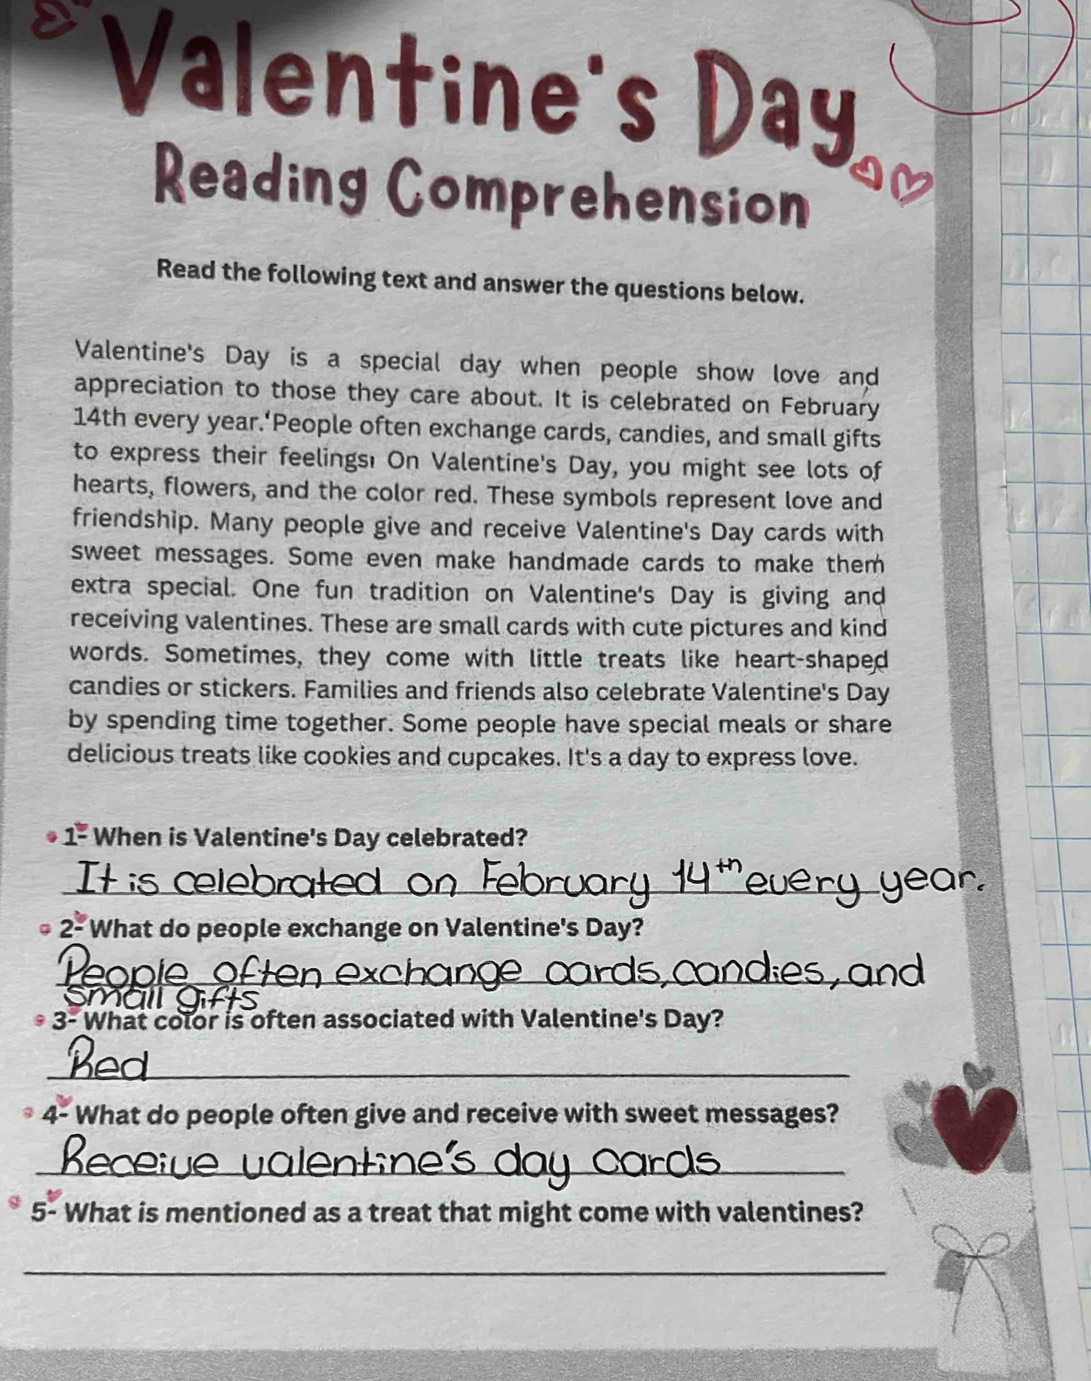 Valentine's Day
Reading Comprehension
Read the following text and answer the questions below.
Valentine's Day is a special day when people show love and
appreciation to those they care about. It is celebrated on February
14th every year. People often exchange cards, candies, and small gifts
to express their feelings. On Valentine's Day, you might see lots of
hearts, flowers, and the color red. These symbols represent love and
friendship. Many people give and receive Valentine's Day cards with
sweet messages. Some even make handmade cards to make them
extra special. One fun tradition on Valentine's Day is giving and
receiving valentines. These are small cards with cute pictures and kind
words. Sometimes, they come with little treats like heart-shaped
candies or stickers. Families and friends also celebrate Valentine's Day
by spending time together. Some people have special meals or share
delicious treats like cookies and cupcakes. It's a day to express love.
1- When is Valentine's Day celebrated?
It is celebrated on February 14th every year.
2- What do people exchange on Valentine's Day?
People often exchange cards, candies, and
small gifts
3- What color is often associated with Valentine's Day?
Red
4- What do people often give and receive with sweet messages?
Receive valentine's day cards
5- What is mentioned as a treat that might come with valentines?